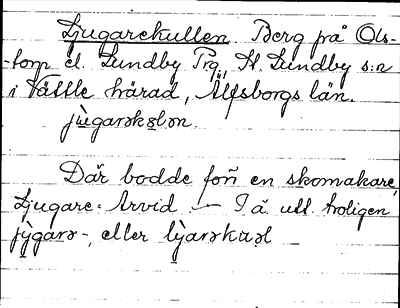 Ljugarekullen Berg på Ols-
-torp el. Lundby Prg, St. Lundby s:n
i Vättle härad, Älfsborgs län.
jùgarəkələn.
Där bodde förr en skomakare,
Ljugare-Arvid — I ä utt. troligen
jỳgarə-, eller